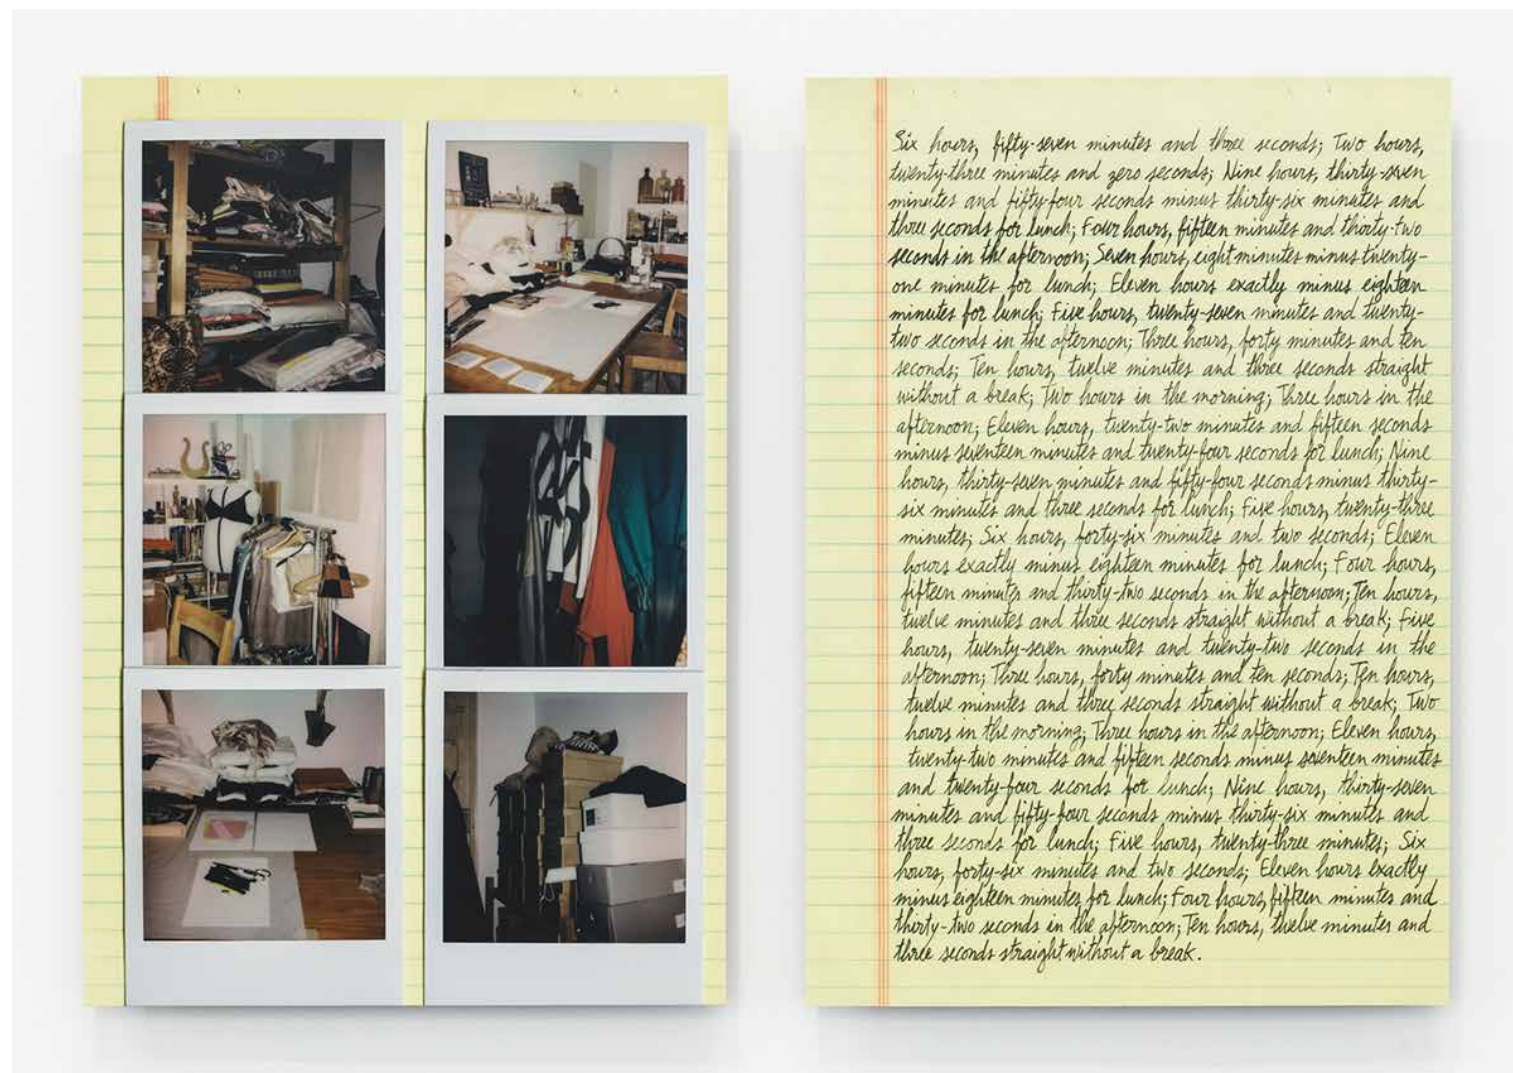 Six hours, fifty-seven minutes and three seconds; Two hours,
twenty-three minutes and zero seconds; Nine hours, thirty-seven
minutes and fifty-four seconds minus thirty-six minutes and
three seconds for lunch; Four hours, fifteen minutes and thirty-two
seconds in the afternoon; Seven hours, eight minutes minus twenty-
one minutes for lunch; Eleven hours exactly minus eighteen
minutes for lunch; Five hours, twenty-seven minutes and twenty-
two seconds in the afternoon; Three hours, forty minutes and ten
seconds; Ten hours, twelve minutes and three seconds straight
without a break; Two hours in the morning; Three hours in the
afternoon; Eleven hours, twenty-two minutes and fifteen seconds
minus seventeen minutes and twenty-four seconds for lunch; Nine
hours, thirty-seven minutes and fifty-four seconds minus thirty-
six minutes and three seconds for lunch; Five hours, twenty-three
minutes; Six hours, forty-six minutes and two seconds; Eleven
hours exactly minus eighteen minutes for lunch; Four hours,
fifteen minutes and thirty-two seconds in the afternoon; Ten hours,
twelve minutes and three seconds straight without a break; Five
hours, twenty-seven minutes and twenty-two seconds in the
afternoon; Three hours, forty minutes and ten seconds; Ten hours,
twelve minutes and three seconds straight without a break; Two
hours in the morning; Three hours in the afternoon; Eleven hours,
twenty-two minutes and fifteen seconds minus seventeen minutes
and twenty-four seconds for lunch; Nine hours, thirty-seven
minutes and fifty-four seconds minus thirty-six minutes and
three seconds for lunch; Five hours, twenty-three minutes; Six
hours, forty-six minutes and two seconds; Eleven hours exactly
minus eighteen minutes for lunch; Four hours, fifteen minutes and
thirty-two seconds in the afternoon; Ten hours, twelve minutes and
three seconds straight without a break.